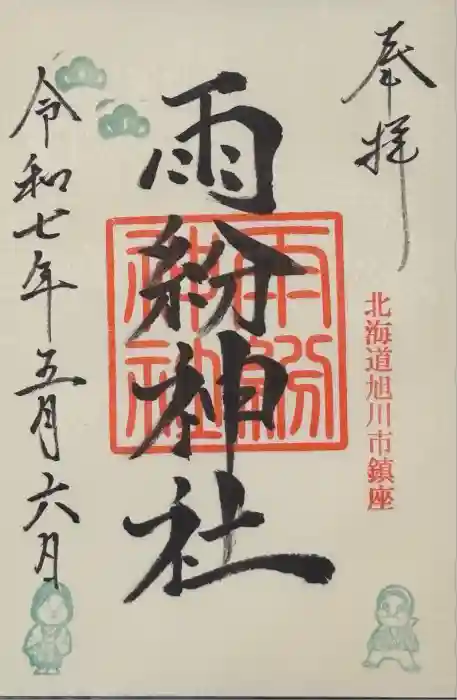 奉拝
北海道旭川市鎮座
雨紛神社
雨紛
神社
令和七年五月六月